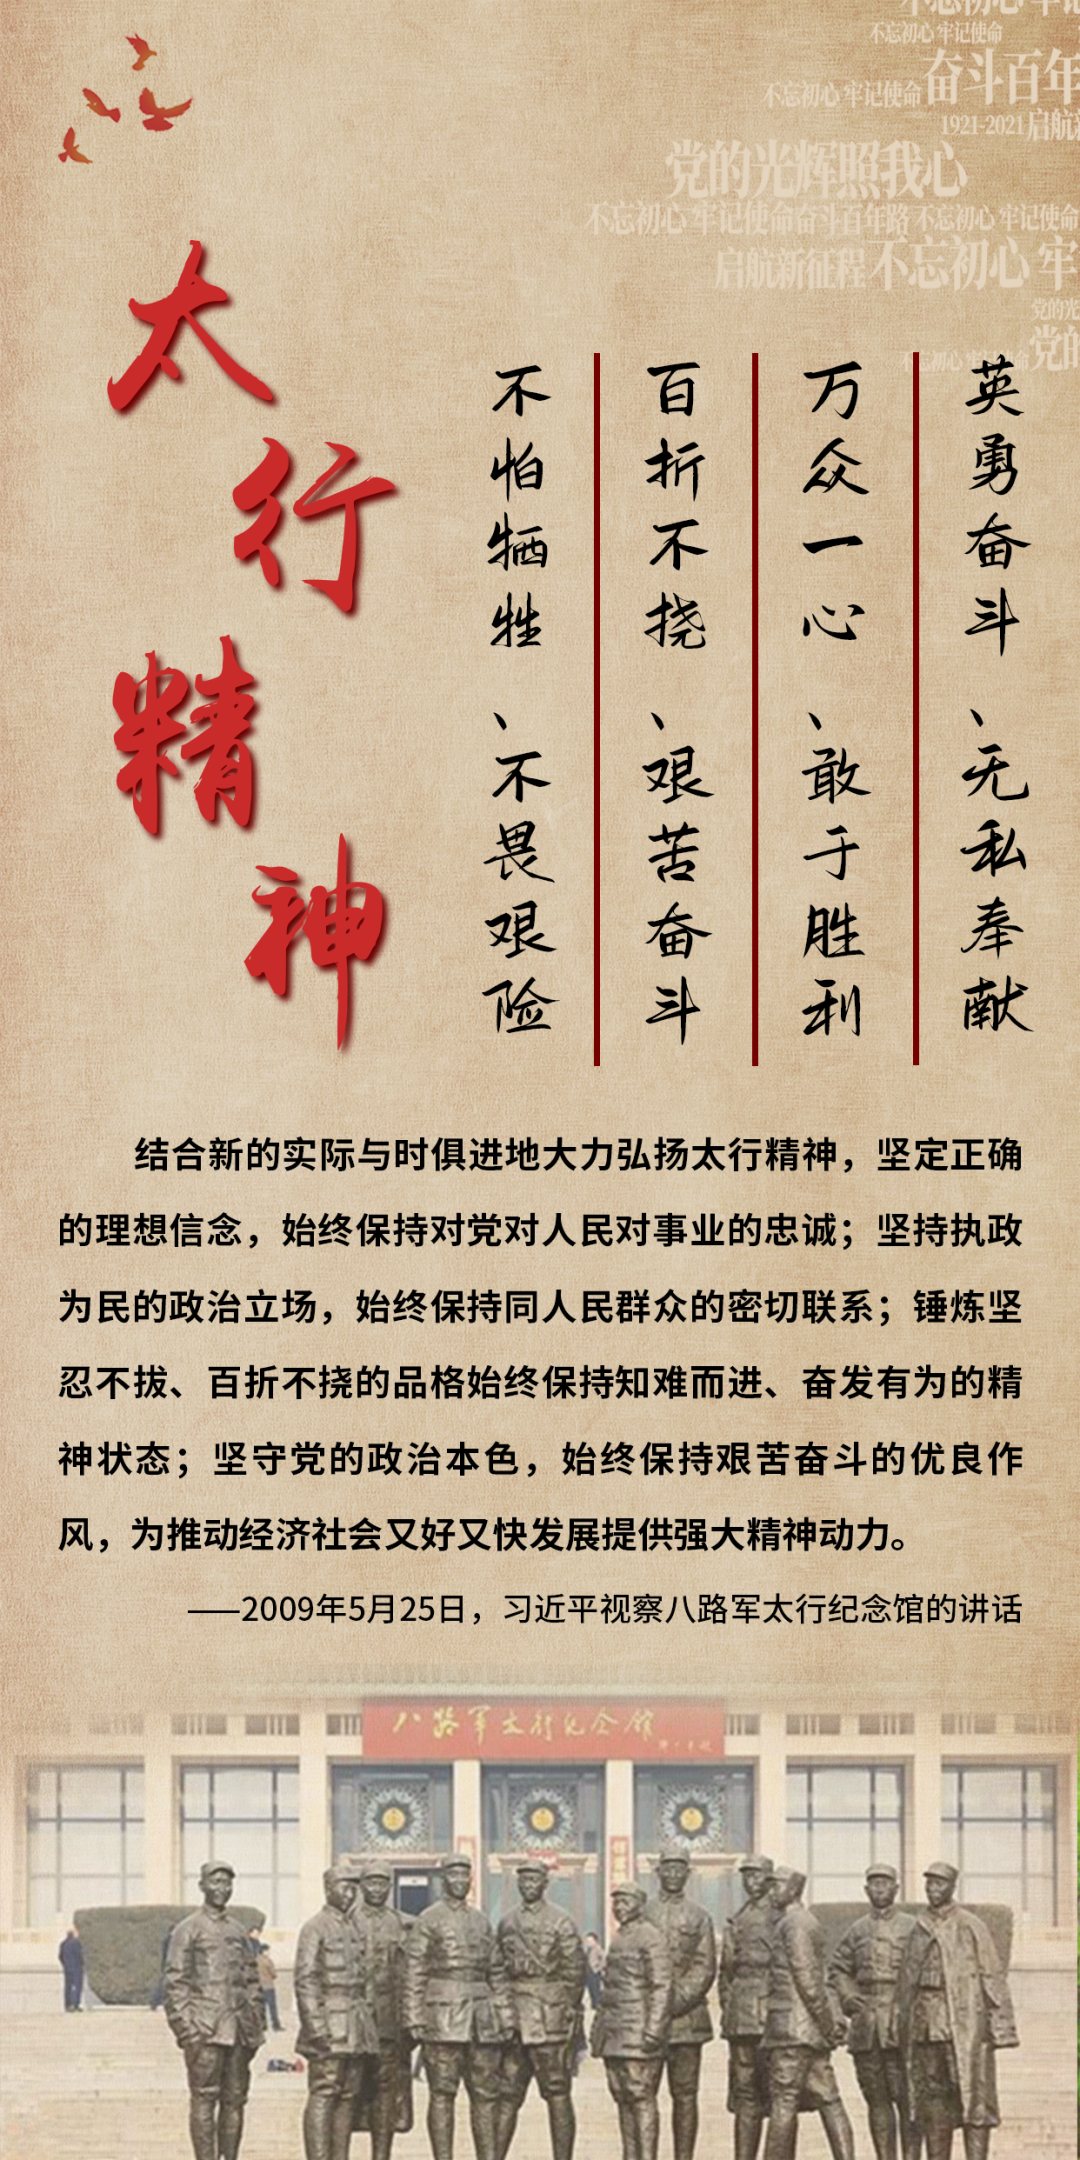 不忘初心 牢记
不忘初心 牢记使命
奋斗百年
不忘初心 牢记使命
1921-2021 启航新
党的光辉照我心
不忘初心 牢记使命奋斗百年路 不忘初心 牢记使命
启航新征程 不忘初心 牢
党的光
不忘初心 牢记使命 党的
太行精神
不怕牺牲、不畏艰险
百折不挠、艰苦奋斗
万众一心、敢于胜利
英勇奋斗、无私奉献
结合新的实际与时俱进地大力弘扬太行精神，坚定正确
的理想信念，始终保持对党对人民对事业的忠诚；坚持执政
为民的政治立场，始终保持同人民群众的密切联系；锤炼坚
忍不拔、百折不挠的品格始终保持知难而进、奋发有为的精
神状态；坚守党的政治本色，始终保持艰苦奋斗的优良作
风，为推动经济社会又好又快发展提供强大精神动力。
——2009年5月25日，习近平视察八路军太行纪念馆的讲话
八路军太行纪念馆